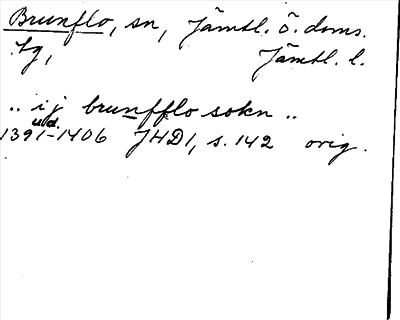 Brunflo, sn, Jämtl. ö. doms.
tg, Jämtl. l.
.. i j brunfflo sokn ..
udd.
1391-1406 JHD1, s. 142 orig.